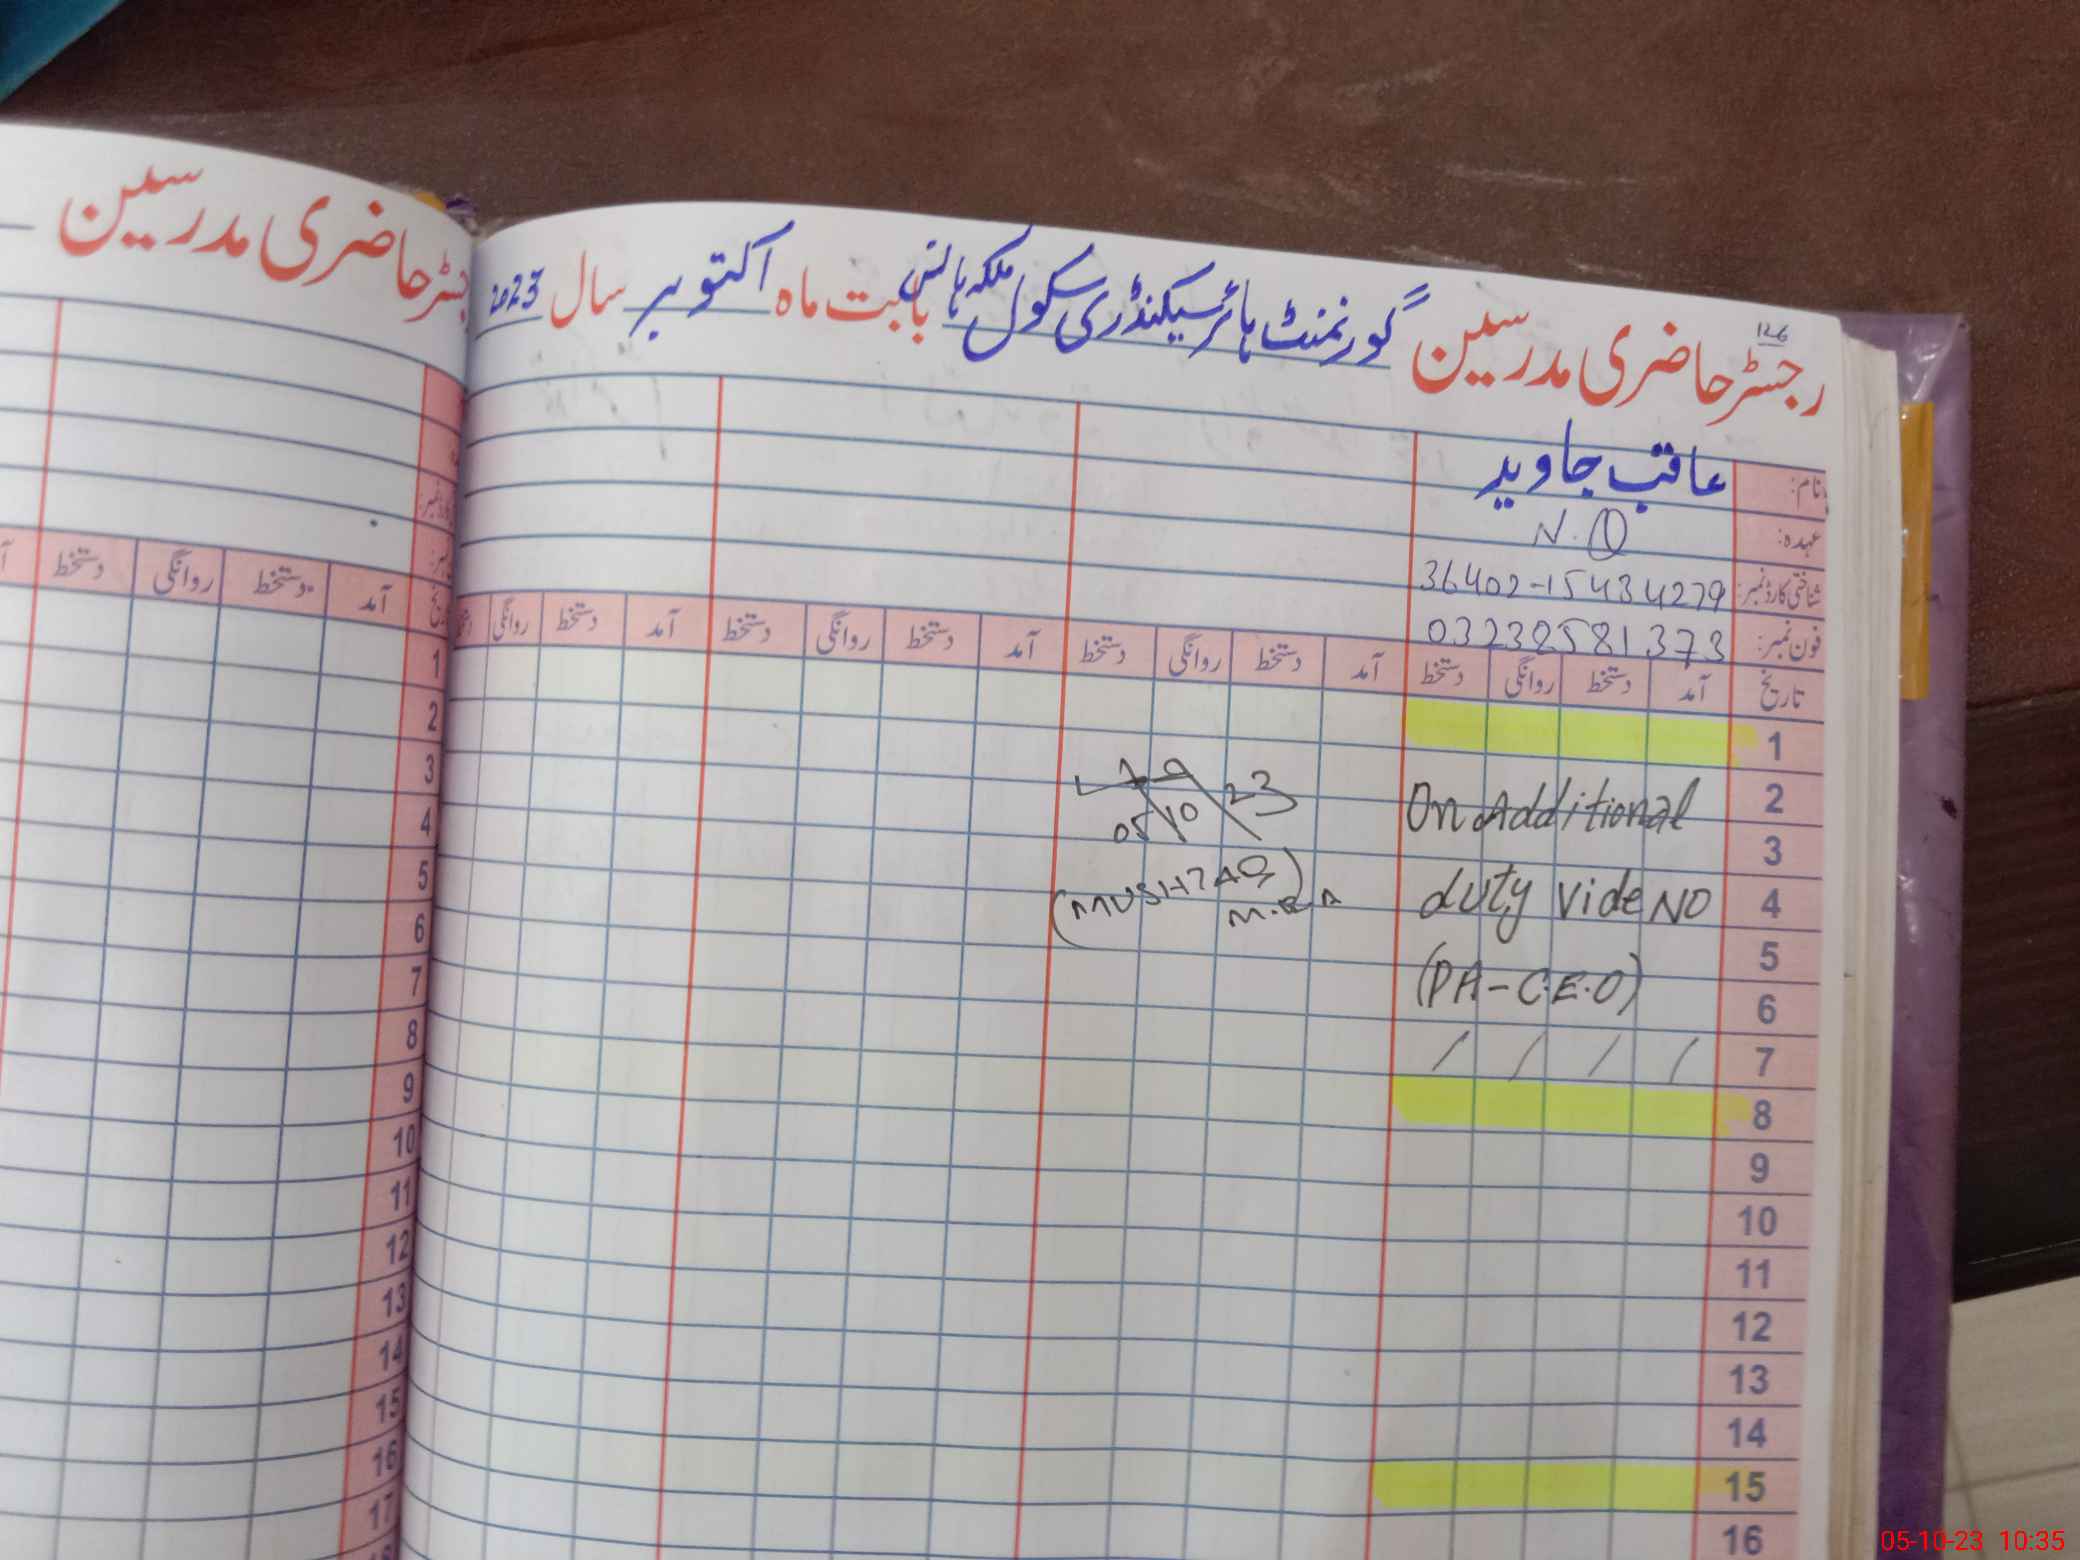 رجسٹر حاضری مدرسین
رجسٹر حاضری مدرسین گورنمنٹ ہائر سیکنڈری سکول ملکہ ہانس بابت ماہ اکتوبر سال 2023
126
نام: عاقب جاوید
عہدہ: N.Q
شناختی کارڈ نمبر: 36402-15434279
فون نمبر: 03232581373
تاریخ آمد دستخط روانگی دستخط آمد دستخط روانگی دستخط آمد دستخط روانگی دستخط آمد دستخط روانگی
آمد دستخط روانگی دستخط
1
2
3
4
5
6
7
8
9
10
11
12
13
14
15
16
On Additional
duty vide NO
(PA-C.E.O)
05/10/23
(MUSHTAQ)
M.E.A
1
2
3
4
5
6
7
8
9
10
11
12
13
14
15
16
17
05-10-23 10:35